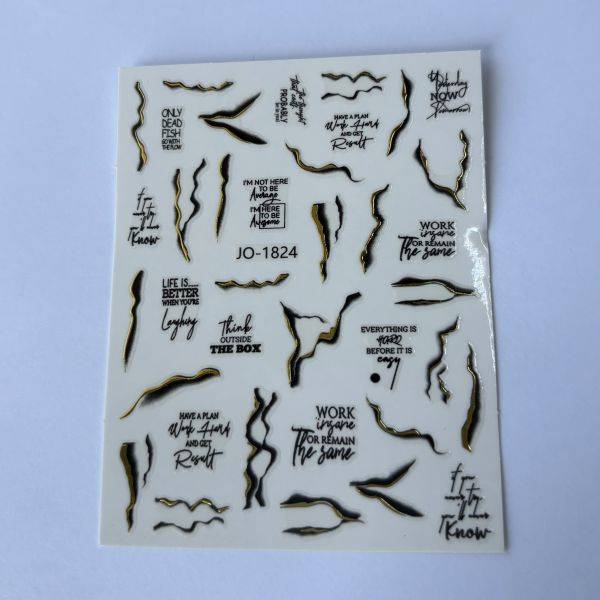 ONLY
DEAD
FISH
GO WITH
THE FLOW
PROBABLY
HAVE A PLAN
Work Hard
AND GET
Result
Yesterday
NOW
Tomorrow
Know
I'M NOT HERE
TO BE
Average
I'M HERE
TO BE
Awesome
WORK
insane
OR REMAIN
The same
JO-1824
LIFE IS.....
BETTER
WHEN YOU'RE
Laughing
Think
OUTSIDE
THE BOX
EVERYTHING IS
HARD
BEFORE IT IS
easy
HAVE A PLAN
Work Hard
AND GET
Result
WORK
insane
OR REMAIN
The same
Know